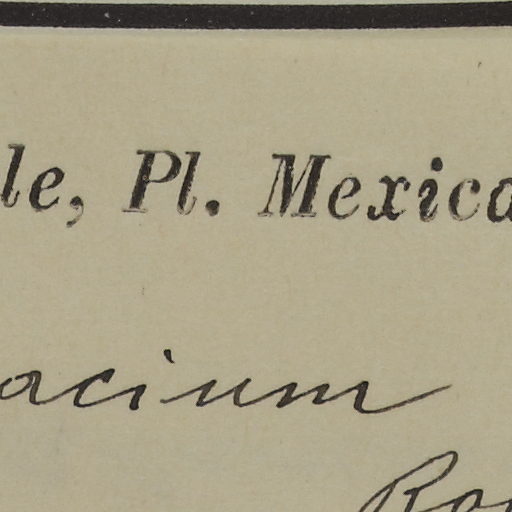 le, Pl. Mexica
acium
Ro